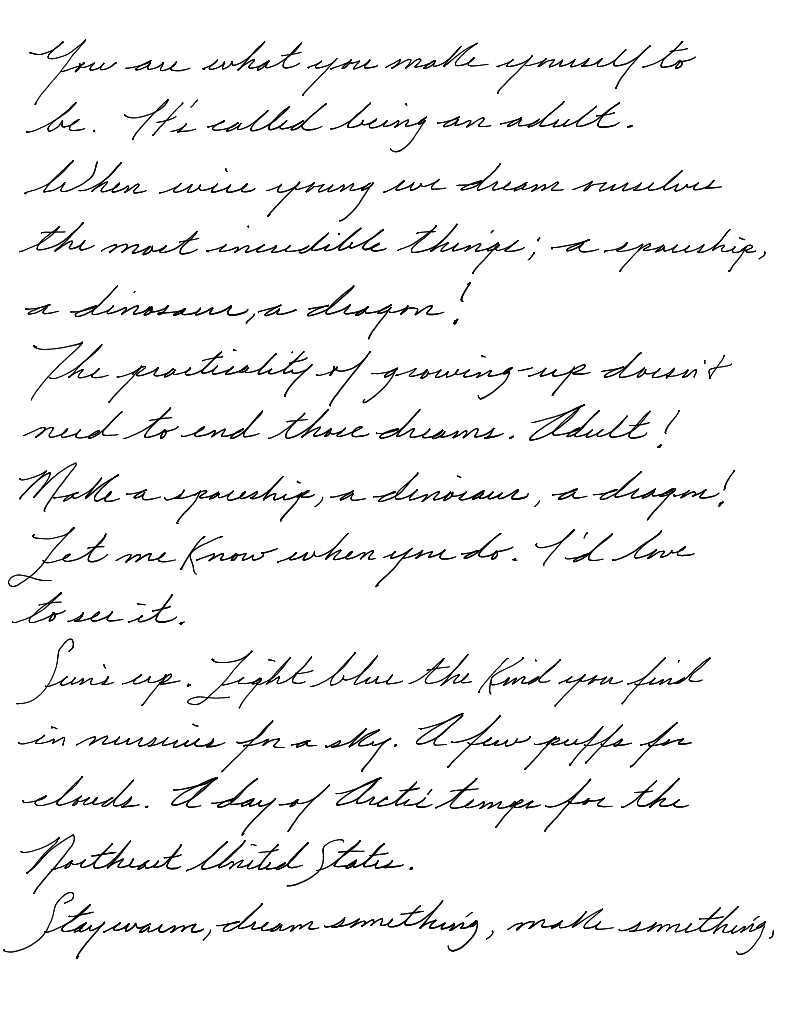 You are what you make yourself to
be. It's called being an adult.
When we're young we dream ourselves
the most incredible things; a spaceship,
a dinosaur, a dragon!
The practicality of growing-up doesn't
need to end those dreams. Adult!
Make a spaceship, a dinosaur, a dragon!
Let me know when you do. I'd love
to see it.
Sun's up. Light blue the kind you find
in nurseries for a sky. A few puffs for
clouds. A day of Arctic temps for the
Northeast United States.
Stay warm, dream something, make something,